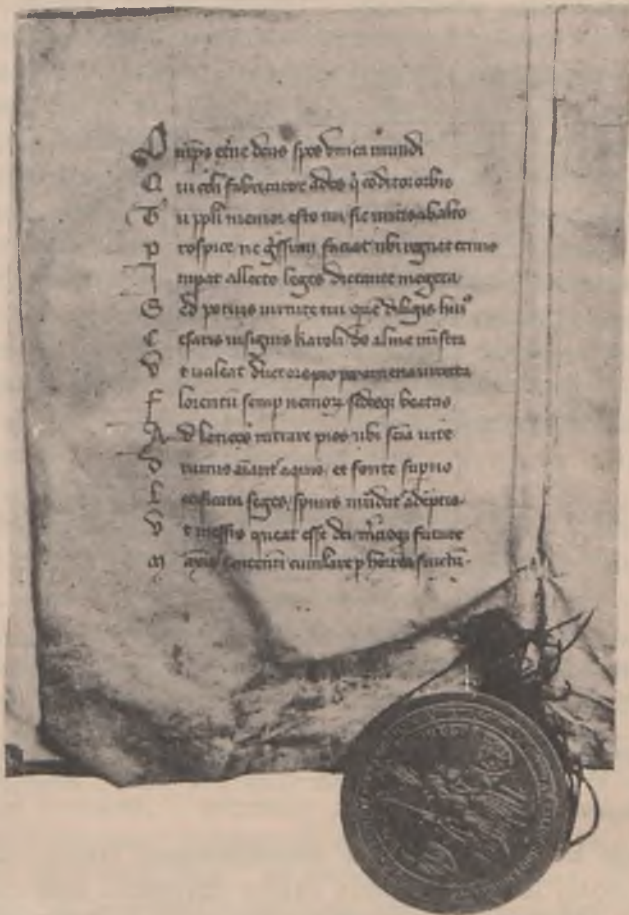 Omps etne deus spes vnica mundi
Qui celi fabricator ades q̇ coditor orbis
Tu ppli memor esto tui sic mitis ab alto
Prospice ne g̃ssum faciat ubi regnat erinis
Impat allecto leges dictante megera
Sed potius uirtute tui que diligis huiꝰ
Cesaris insignis karoli ds alme mistra
Vt ualeat ductore pio per amena uireta
Florentu semp nemoꝝ sedesqȝ beatas
Ad latices intrare pios ubi sēia uite
Diuinis aīant aquis et fonte supno
Letificata seges spinis mūdat adeptis
Vt messis queat esse dei mcisqȝ future
Maxia centenū cumulare p horrea fructū